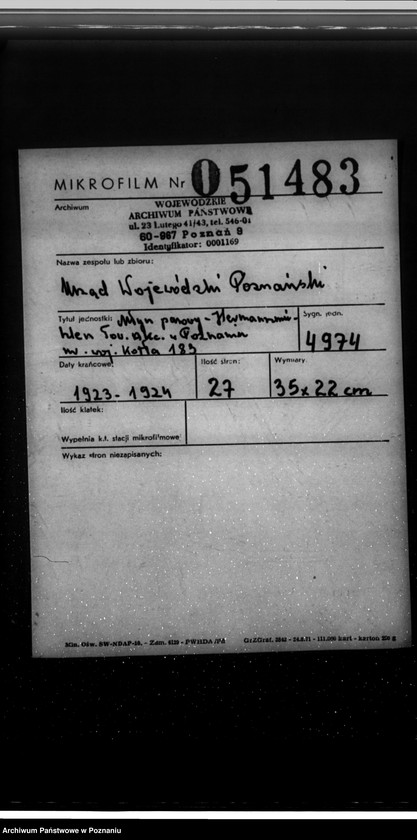 MIKROFILM Nr 051483
Archiwum
WOJEWÓDZKIE
ARCHIWUM PAŃSTWOWE
ul. 23 Lutego 41/43, tel. 546-01
60-967 Poznań 9
Identyfikator: 0001169
Nazwa zespołu lub zbioru:
Urząd Wojewódzki Poznański
Tytuł jednostki: Młyn parowy - Hermannmü-
hlen Tow. Akc. w Poznaniu
nr. woj. kotła 183
Sygn. jedn.
4974
Daty krańcowe:
1923-1924
Ilość stron:
27
Wymiary
35x22 cm
Ilość klatek:
Wypełnia k.t. stacji mikrofilmowe
Wykaz stron niezapisanych:
Min. Ośw. SW-NDAP-10. - Zam.
GrZGraf.
karton
Archiwum Państwowe w Poznaniu